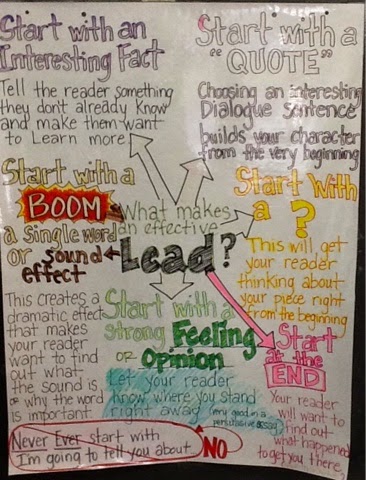 Start with an
Interesting Fact
Tell the reader something
they dont already know
and make them want
to Learn more
Start with a
"QUOTE"
Choosing an interesting
Dialogue sentence
builds your character
from the very beginning
Start with a
BOOM
a single word
or sound
effect
This creates a
dramatic effect
that makes
your reader
want to find
out what
the sound is
or why the word
is important
What makes
an effective
Lead?
Start With
a ?
This will get
your reader
thinking about
your piece right
from the beginning
Start with a
strong Feeling
or Opinion
Let your reader
know where you stand
right away (very good in a
persuasive essay)
Start
at the
END
Your reader
will want to
find out
what happened
to get you there.
Never Ever start with
I'm going to tell you about
NO